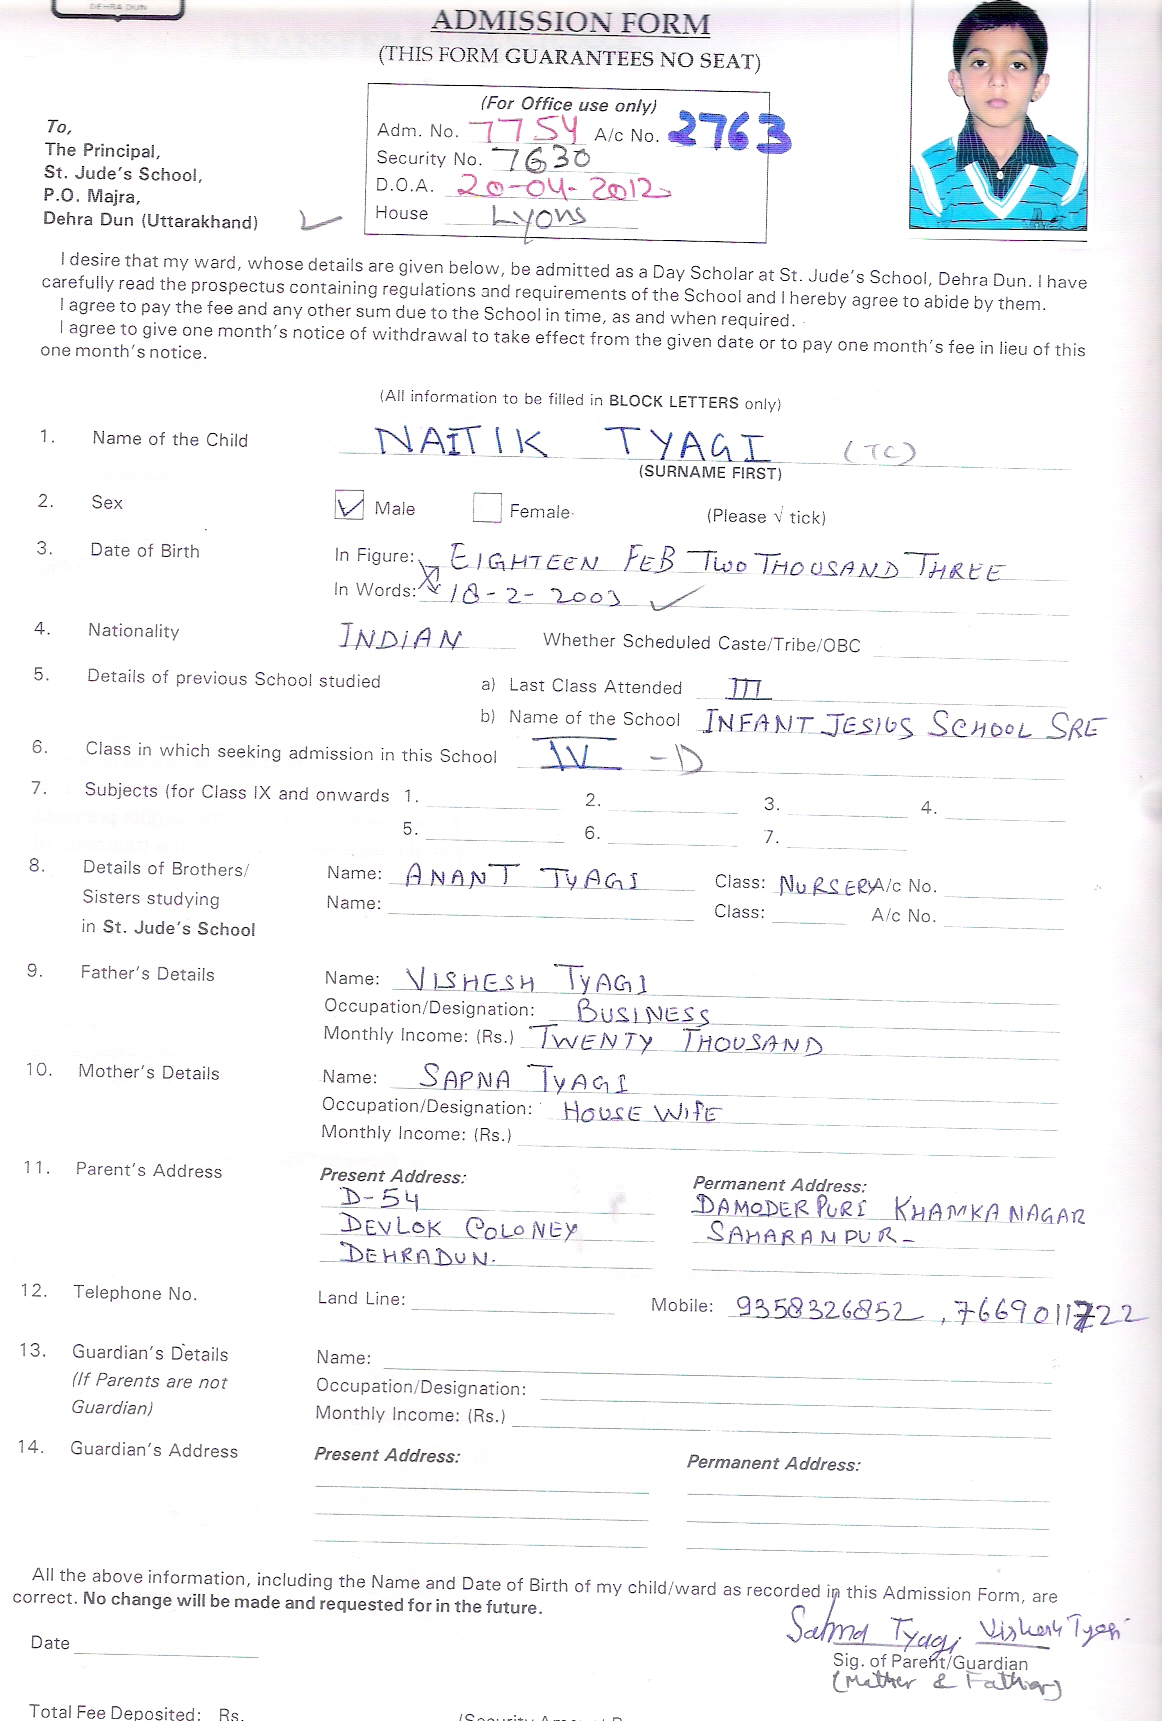 DEHRA DUN
ADMISSION FORM
(THIS FORM GUARANTEES NO SEAT)
(For Office use only)
Adm. No. 7754 A/c No. 2763
Security No. 7630
D.O.A. 20-04-2012
House Lyons
To,
The Principal,
St. Jude's School,
P.O. Majra,
Dehra Dun (Uttarakhand)
I desire that my ward, whose details are given below, be admitted as a Day Scholar at St. Jude's School, Dehra Dun. I have
carefully read the prospectus containing regulations and requirements of the School and I hereby agree to abide by them.
I agree to pay the fee and any other sum due to the School in time, as and when required.
I agree to give one month's notice of withdrawal to take effect from the given date or to pay one month's fee in lieu of this
one month's notice.
(All information to be filled in BLOCK LETTERS only)
1. Name of the Child NAITIK TYAGI (TC)
(SURNAME FIRST)
2. Sex Male Female (Please √ tick)
3. Date of Birth In Figure: EIGHTEEN FEB TWO THOUSAND THREE
In Words: 18-2-2003
4. Nationality INDIAN Whether Scheduled Caste/Tribe/OBC
5. Details of previous School studied a) Last Class Attended III
b) Name of the School INFANT JESIUS SCHOOL SRE
6. Class in which seeking admission in this School IV - D
7. Subjects (for Class IX and onwards 1. 2. 3. 4.
5. 6. 7.
8. Details of Brothers/ Name: ANANT TYAGI Class: NURSERY A/c No.
Sisters studying Name: Class: A/c No.
in St. Jude's School
9. Father's Details Name: VISHESH TYAGI
Occupation/Designation: BUSINESS
Monthly Income: (Rs.) TWENTY THOUSAND
10. Mother's Details Name: SAPNA TYAGI
Occupation/Designation: HOUSE WIFE
Monthly Income: (Rs.)
11. Parent's Address Present Address: Permanent Address:
D-54 DAMODER PURI KHAMKA NAGAR
DEVLOK COLONEY SAHARANPUR-
DEHRADUN.
12. Telephone No. Land Line: Mobile: 9358326852, 7669011722
13. Guardian's Details Name:
(If Parents are not Occupation/Designation:
Guardian) Monthly Income: (Rs.)
14. Guardian's Address Present Address: Permanent Address:
All the above information, including the Name and Date of Birth of my child/ward as recorded in this Admission Form, are
correct. No change will be made and requested for in the future.
Tyagi Vishesh Tyagi
Date Sig. of Parent/Guardian
(Mother & Father)
Total Fee Deposited: Rs.